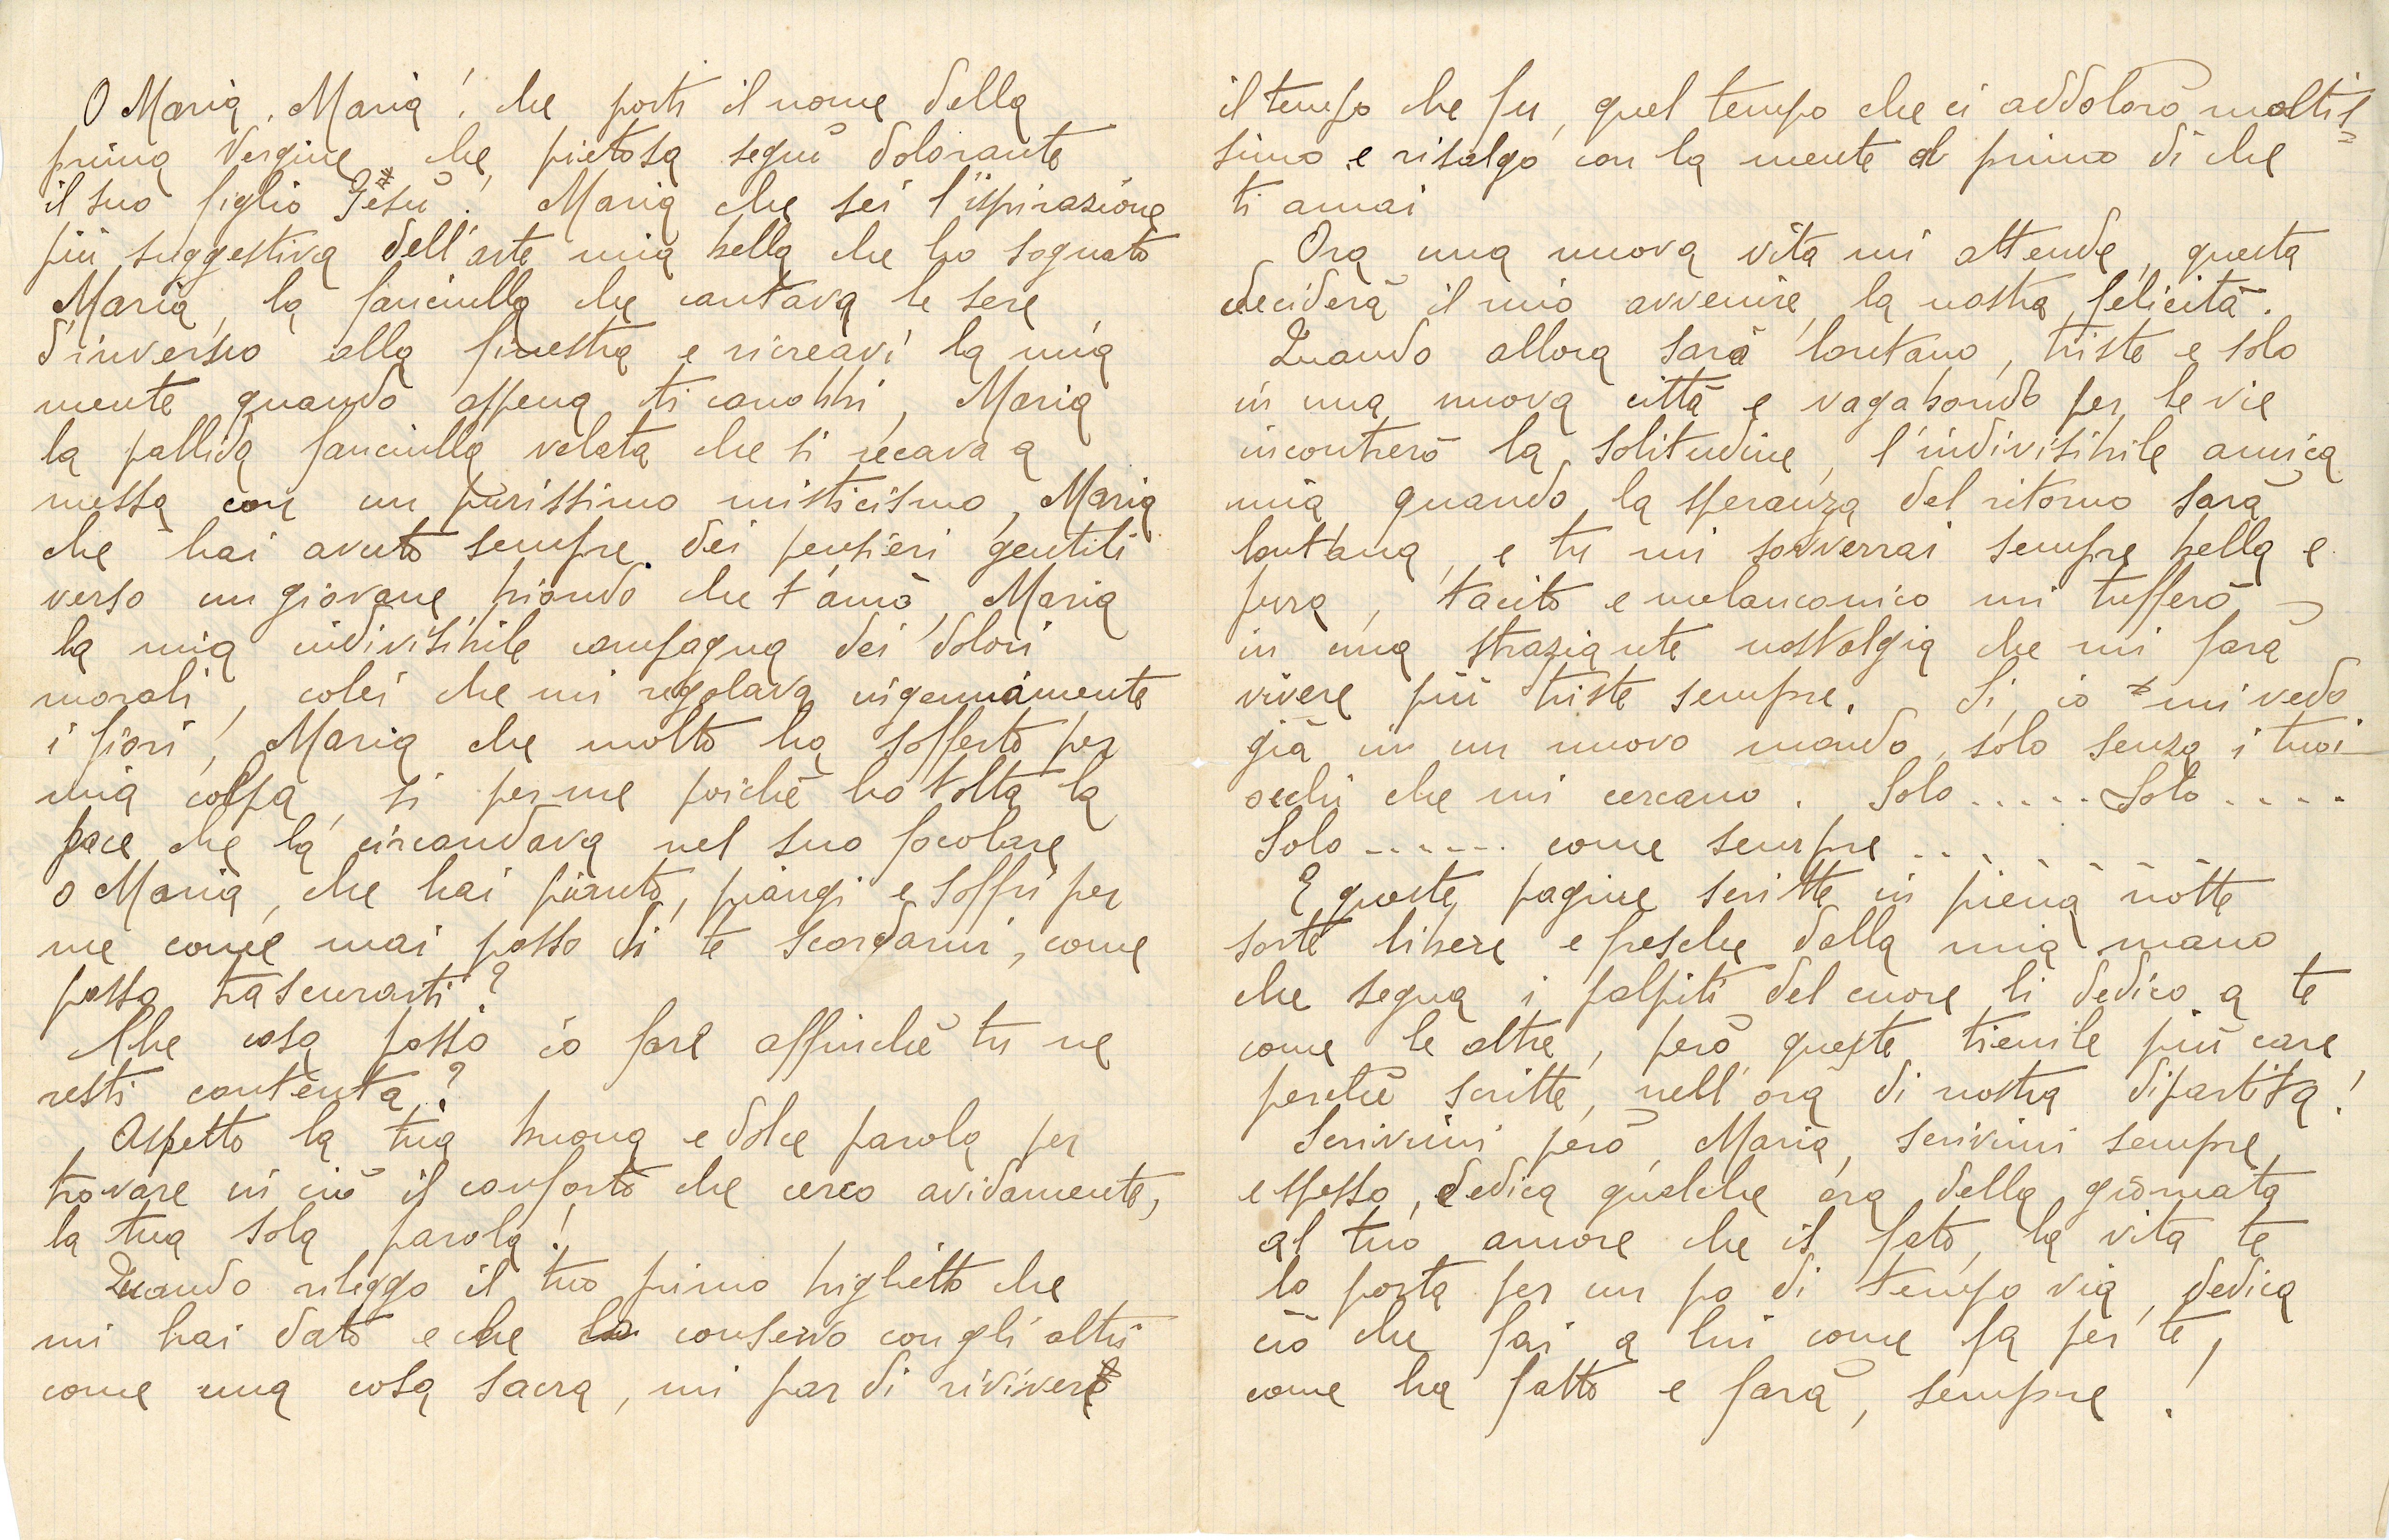 O Maria, Maria! che porti il nome della
prima Vergine che, pietosa seguì dolorante
il suo figlio Jesù! Maria che sei l'ispirazione
più suggestiva dell'arte mia bella che ho sognato
Maria, la fanciulla che cantava le sere
d'inverno alla finestra e ricreavi la mia
mente quando appena ti conobbi, Maria
la pallida fanciulla velata che si recava a
messa con un purissimo misticismo, Maria
che hai avuto sempre dei pensieri gentili
verso un giovane biondo che t'amò, Maria
la mia indivisibile compagna dei dolori
morali, colei che mi regolava ingenuamente
i fiori, Maria che molto ha sofferto per
mia colpa, si per me poichè ho tolta la
pace che la circondava nel suo focolare
o Maria, che hai pianto, piangi e soffri per
me come mai posso di te scordarmi, come
posso trascurarti?
Che cosa posso io fare affinchè tu ne
resti contenta?
Aspetto la tua buona e dolce parola per
trovare in ciò il conforto che cerco avidamente,
la tua sola parola!
Quando rileggo il tuo primo biglietto che
mi hai dato e che conservo con gli altri
come una cosa sacra, mi par di rivivere
il tempo che fu, quel tempo che ci addolorò moltis=
simo e risalgo con la mente al primo dì che
ti amai
Ora una nuova vita mi attende, questa
deciderà il mio avvenire, la nostra felicità.
Quando allora sarò lontano, triste e solo
in una nuova città e vagabondo per le vie
incontrerò la solitudine, l'indivisibile amica
mia quando la speranza del ritorno sarà
lontana, e tu mi sovverrai sempre bella e
pura, tacito e melanconico mi tufferò
in una straziante nostalgia che mi farà
vivere più triste sempre. Si, io mi vedo
già in un nuovo mondo, solo senza i tuoi
occhi che mi cercano. Solo..... Solo.....
Solo...... come sempre......
E queste pagine scritte in piena notte
sorte libere e fresche dalla mia mano
che segna i palpiti del cuore li dedico a te
come le altre, però queste tienile più care
perchè scritte, nell'ora di nostra dipartita!
Scrivimi però, Maria, scrivimi sempre
e spesso, dedica qualche ora della giornata
al tuo amore che il fato, la vita te
lo porta per un po di tempo via, dedica
ciò che fai a lui come fa per te,
come ha fatto e farà, sempre!